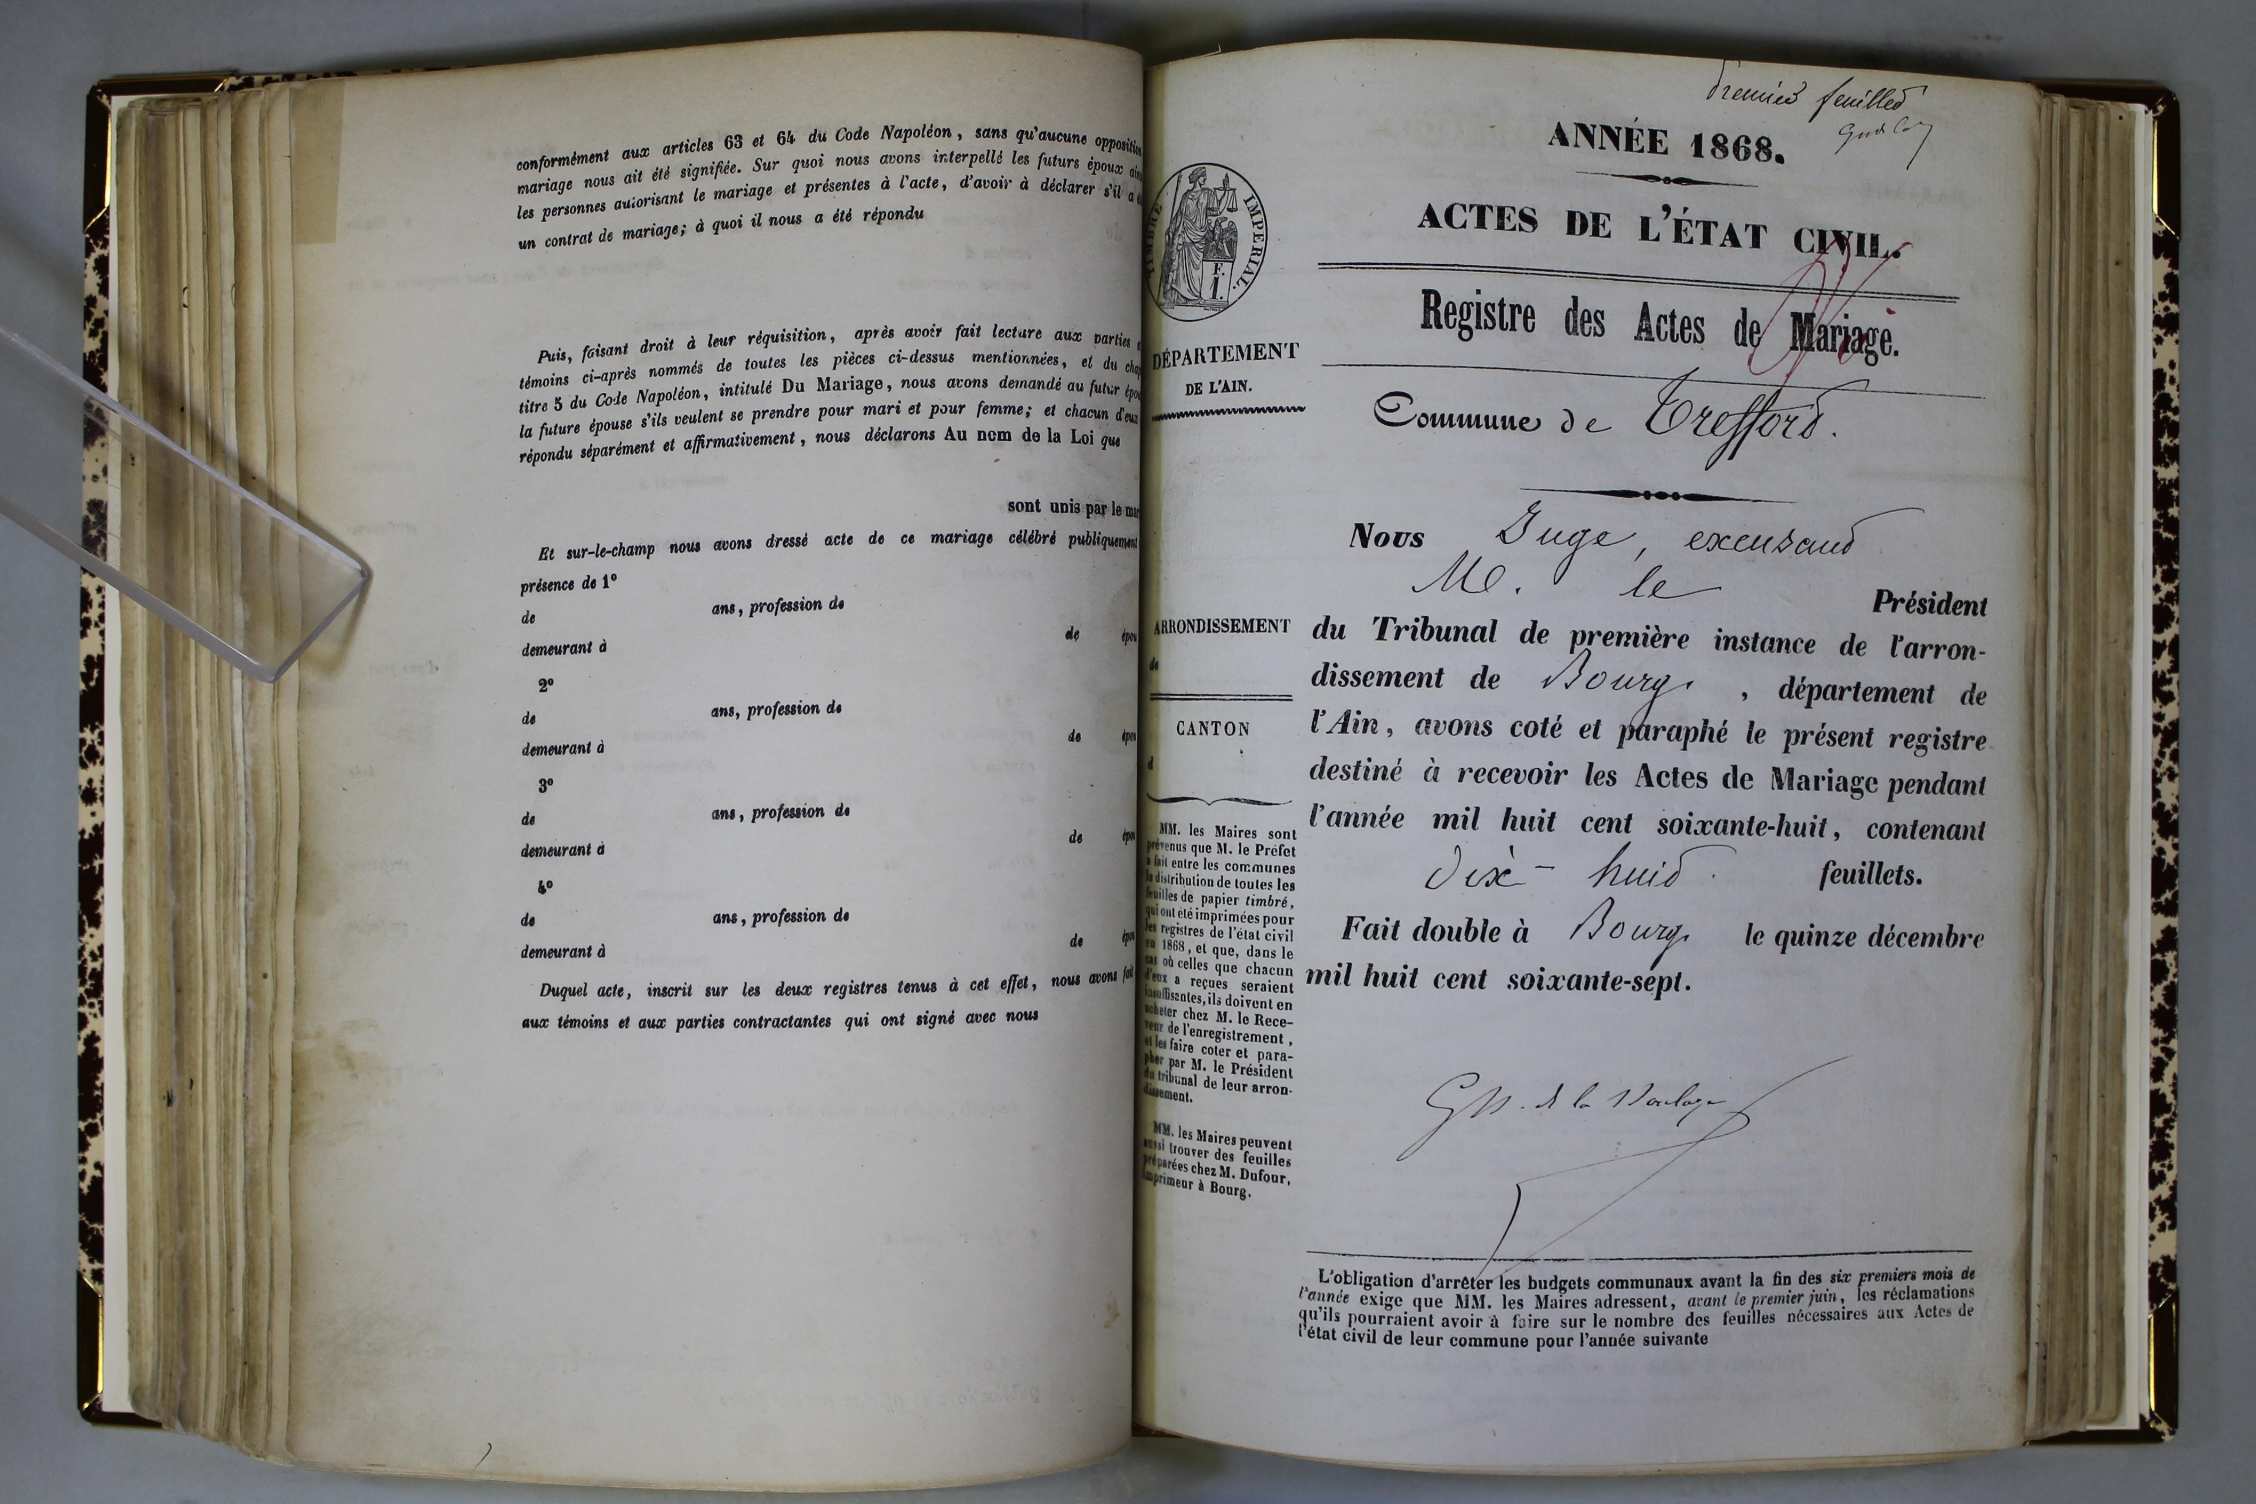 conformément aux articles 63 et 64 du Code Napoléon, sans qu'aucune opposition
mariage nous ait été signifiée. Sur quoi nous avons interpellé les futurs époux ain
les personnes autorisant le mariage et présentes à l'acte, d'avoir à déclarer s'il a é
un contrat de mariage; à quoi il nous a été répondu
Puis, faisant droit à leur réquisition, après avoir fait lecture aux parties
témoins ci-après nommés de toutes les pièces ci-dessus mentionnées, et du cha
titre 5 du Code Napoléon, intitulé Du Mariage, nous avons demandé au futur épou
la future épouse s'ils veulent se prendre pour mari et pour femme; et chacun d'eux
répondu séparément et affirmativement, nous déclarons Au nom de la Loi que
sont unis par le mar
Et sur-le-champ nous avons dressé acte de ce mariage célébré publiquement
présence de 1º
de ans, profession de
demeurant à de épou
2º
de ans, profession de
demeurant à de épou
3º
de ans, profession de
demeurant à de épou
4º
de ans, profession de
demeurant à de épou
Duquel acte, inscrit sur les deux registres tenus à cet effet, nous avons fait
aux témoins et aux parties contractantes qui ont signé avec nous
Premier feuillet
ANNÉE 1868.
ACTES DE L'ÉTAT CIVIL.
TIMBRE IMPERIAL.
F.
1.
Registre des Actes de Mariage.
DÉPARTEMENT
DE L'AIN.
Commune de Treffort.
Nous Juge, excusant
M. le Président
ARRONDISSEMENT
de
du Tribunal de première instance de l'arron-
dissement de Bourg, département de
l'Ain, avons coté et paraphé le présent registre
destiné à recevoir les Actes de Mariage pendant
l'année mil huit cent soixante-huit, contenant
dix-huit feuillets.
Fait double à Bourg, le quinze décembre
mil huit cent soixante-sept.
CANTON
d
MM. les Maires sont
prévenus que M. le Préfet
a fait entre les communes
la distribution de toutes les
feuilles de papier timbré,
qui ont été imprimées pour
les registres de l'état civil
en 1868, et que, dans le
cas où celles que chacun
d'eux a reçues seraient
insuffisantes, ils doivent en
acheter chez M. le Rece-
veur de l'enregistrement,
et les faire coter et para-
pher par M. le Président
du tribunal de leur arron-
dissement.
MM. les Maires peuvent
aussi trouver des feuilles
préparées chez M. Dufour,
imprimeur à Bourg.
L'obligation d'arrêter les budgets communaux avant la fin des six premiers mois de
l'année exige que MM. les Maires adressent, avant le premier juin, les réclamations
qu'ils pourraient avoir à faire sur le nombre des feuilles nécessaires aux Actes de
l'état civil de leur commune pour l'année suivante